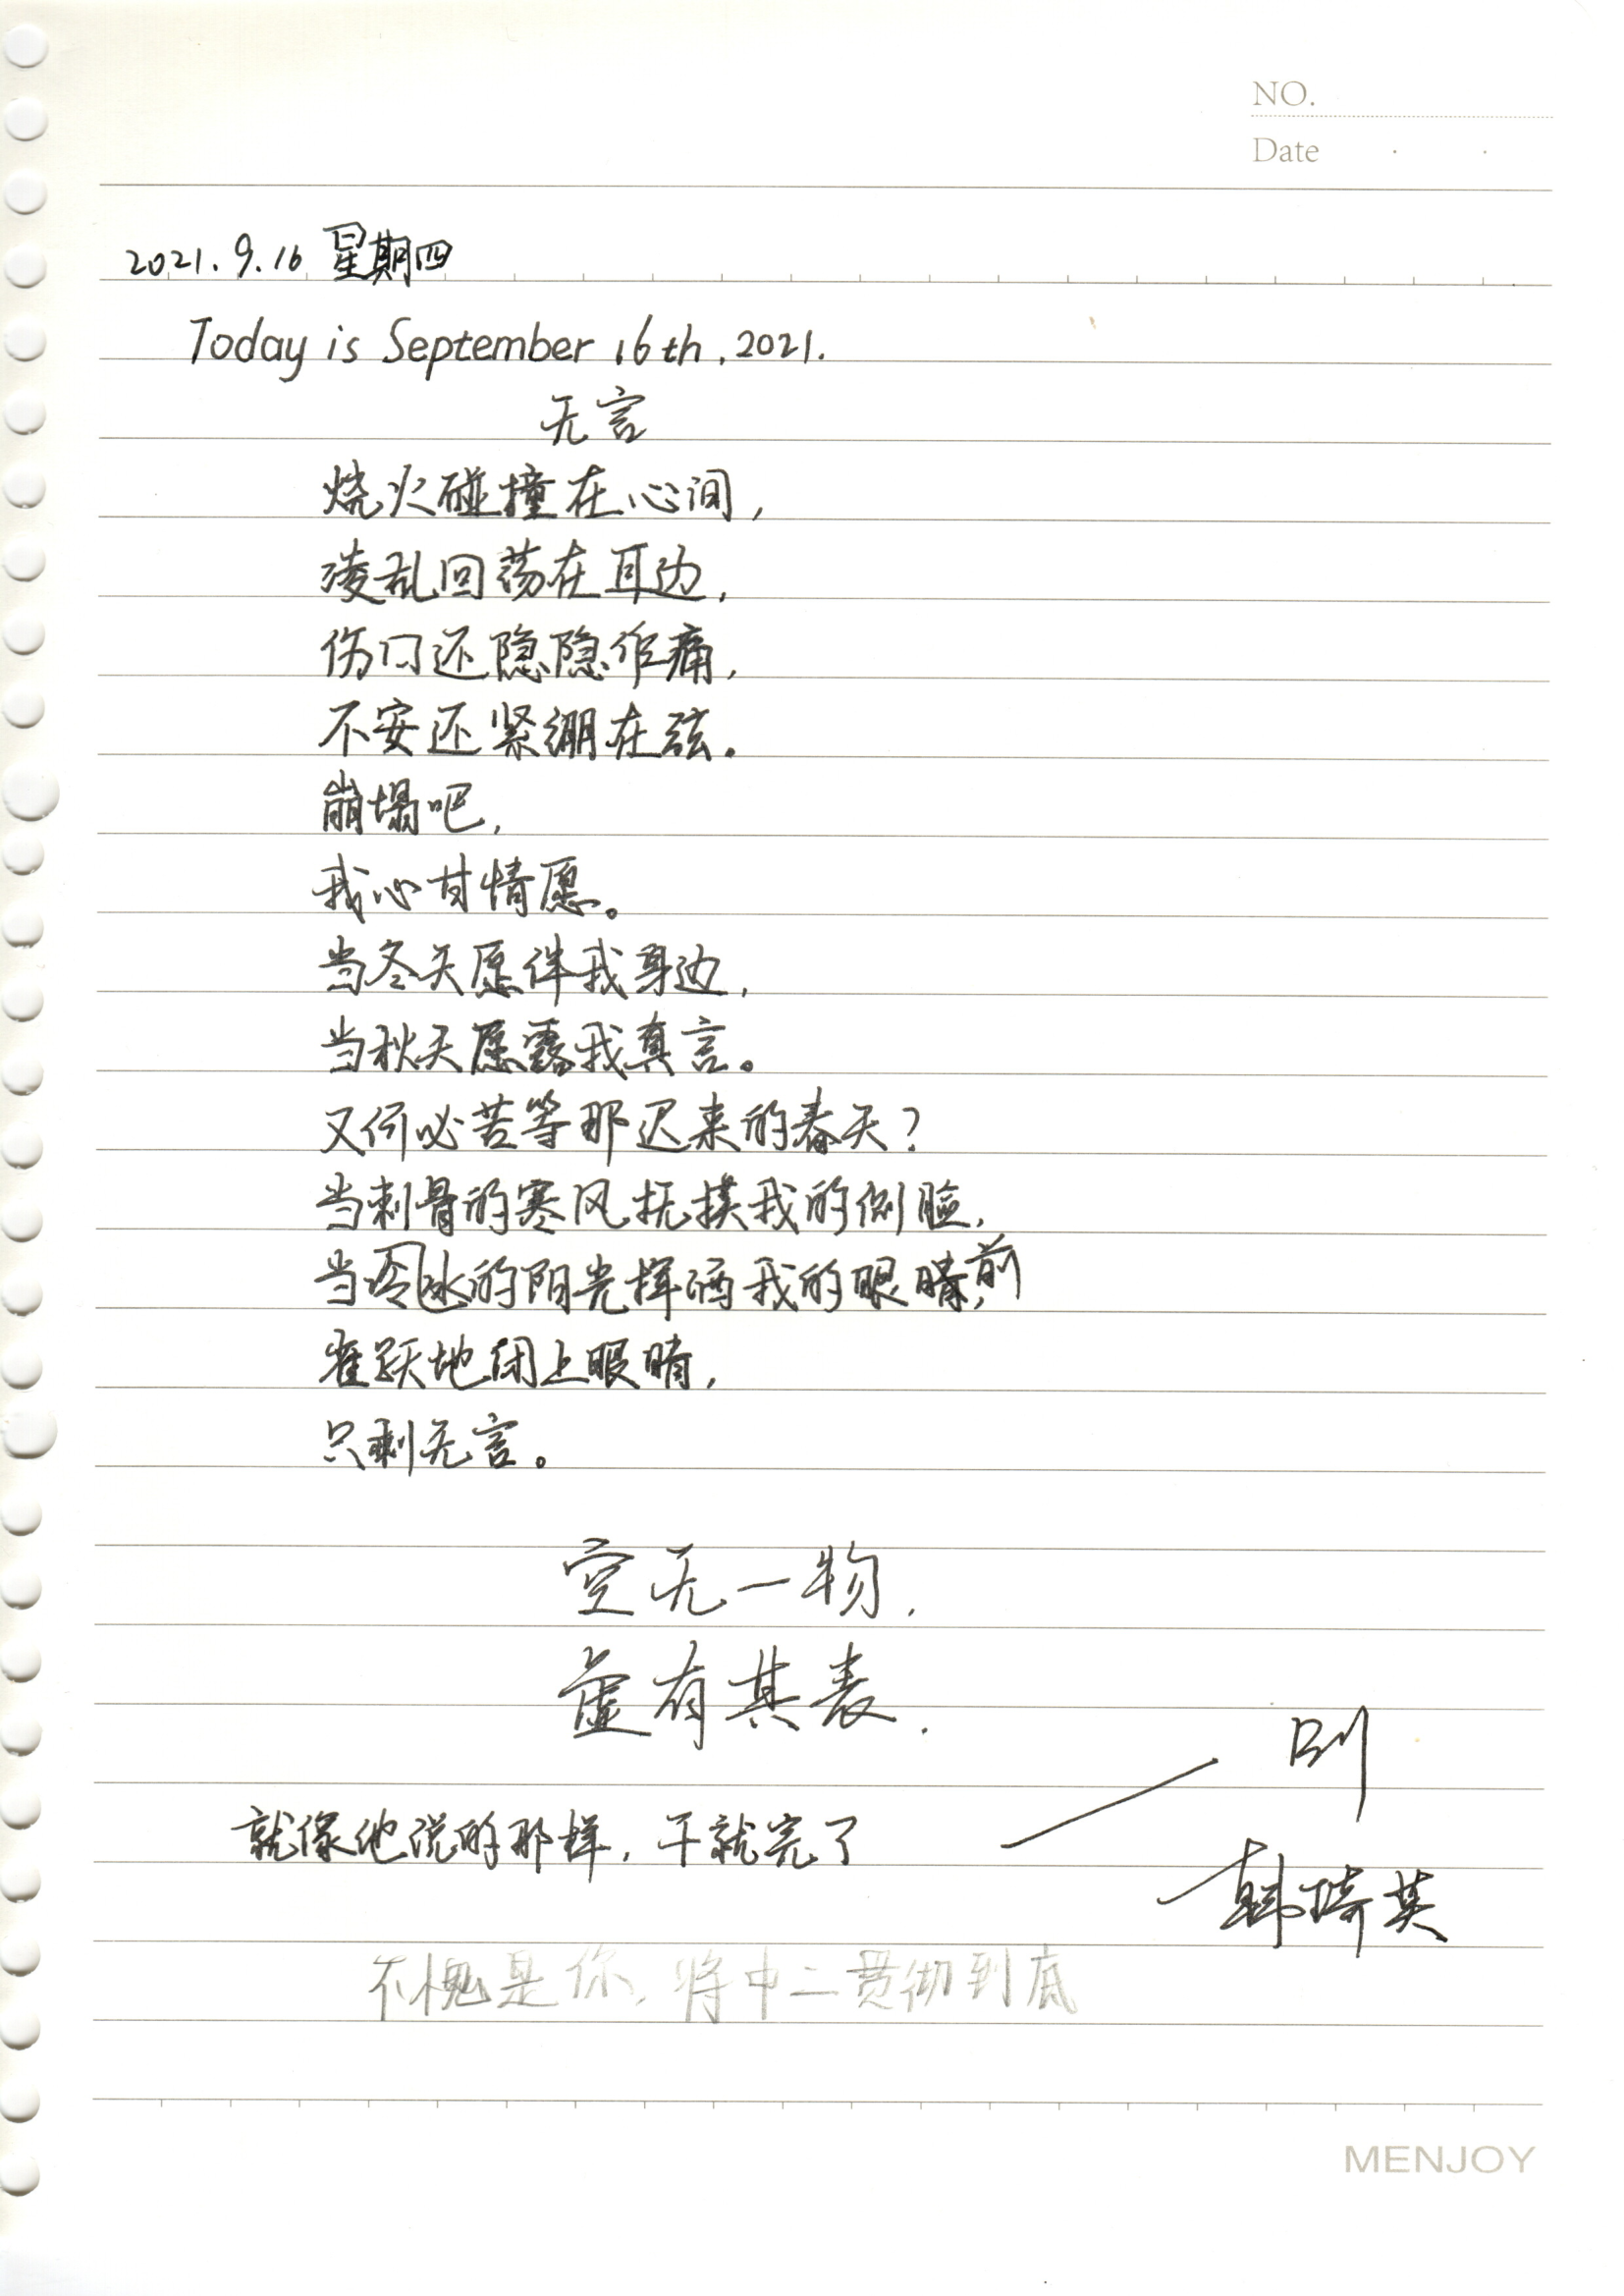 NO.
Date
2021.9.16 星期四
Today is September 16th, 2021.
无言
烧火碰撞在心间,
凌乱回荡在耳边,
伤口还隐隐作痛,
不安还紧绷在弦。
崩塌吧,
我心甘情愿。
当冬天愿伴我身边,
当秋天愿露我真言。
又何必苦等那迟来的春天?
当刺骨的寒风抚摸我的侧脸,
当冷冰的阳光挥洒我的眼睛前,
雀跃地闭上眼睛,
只剩无言。
空无一物,
虚有其表.
别
就像他说的那样, 干就完了
韩琦英
不愧是你, 将中二贯彻到底
MENJOY